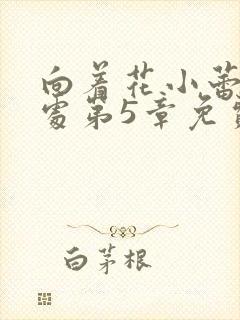 向着花小蕾
处第5章免费
白茅根